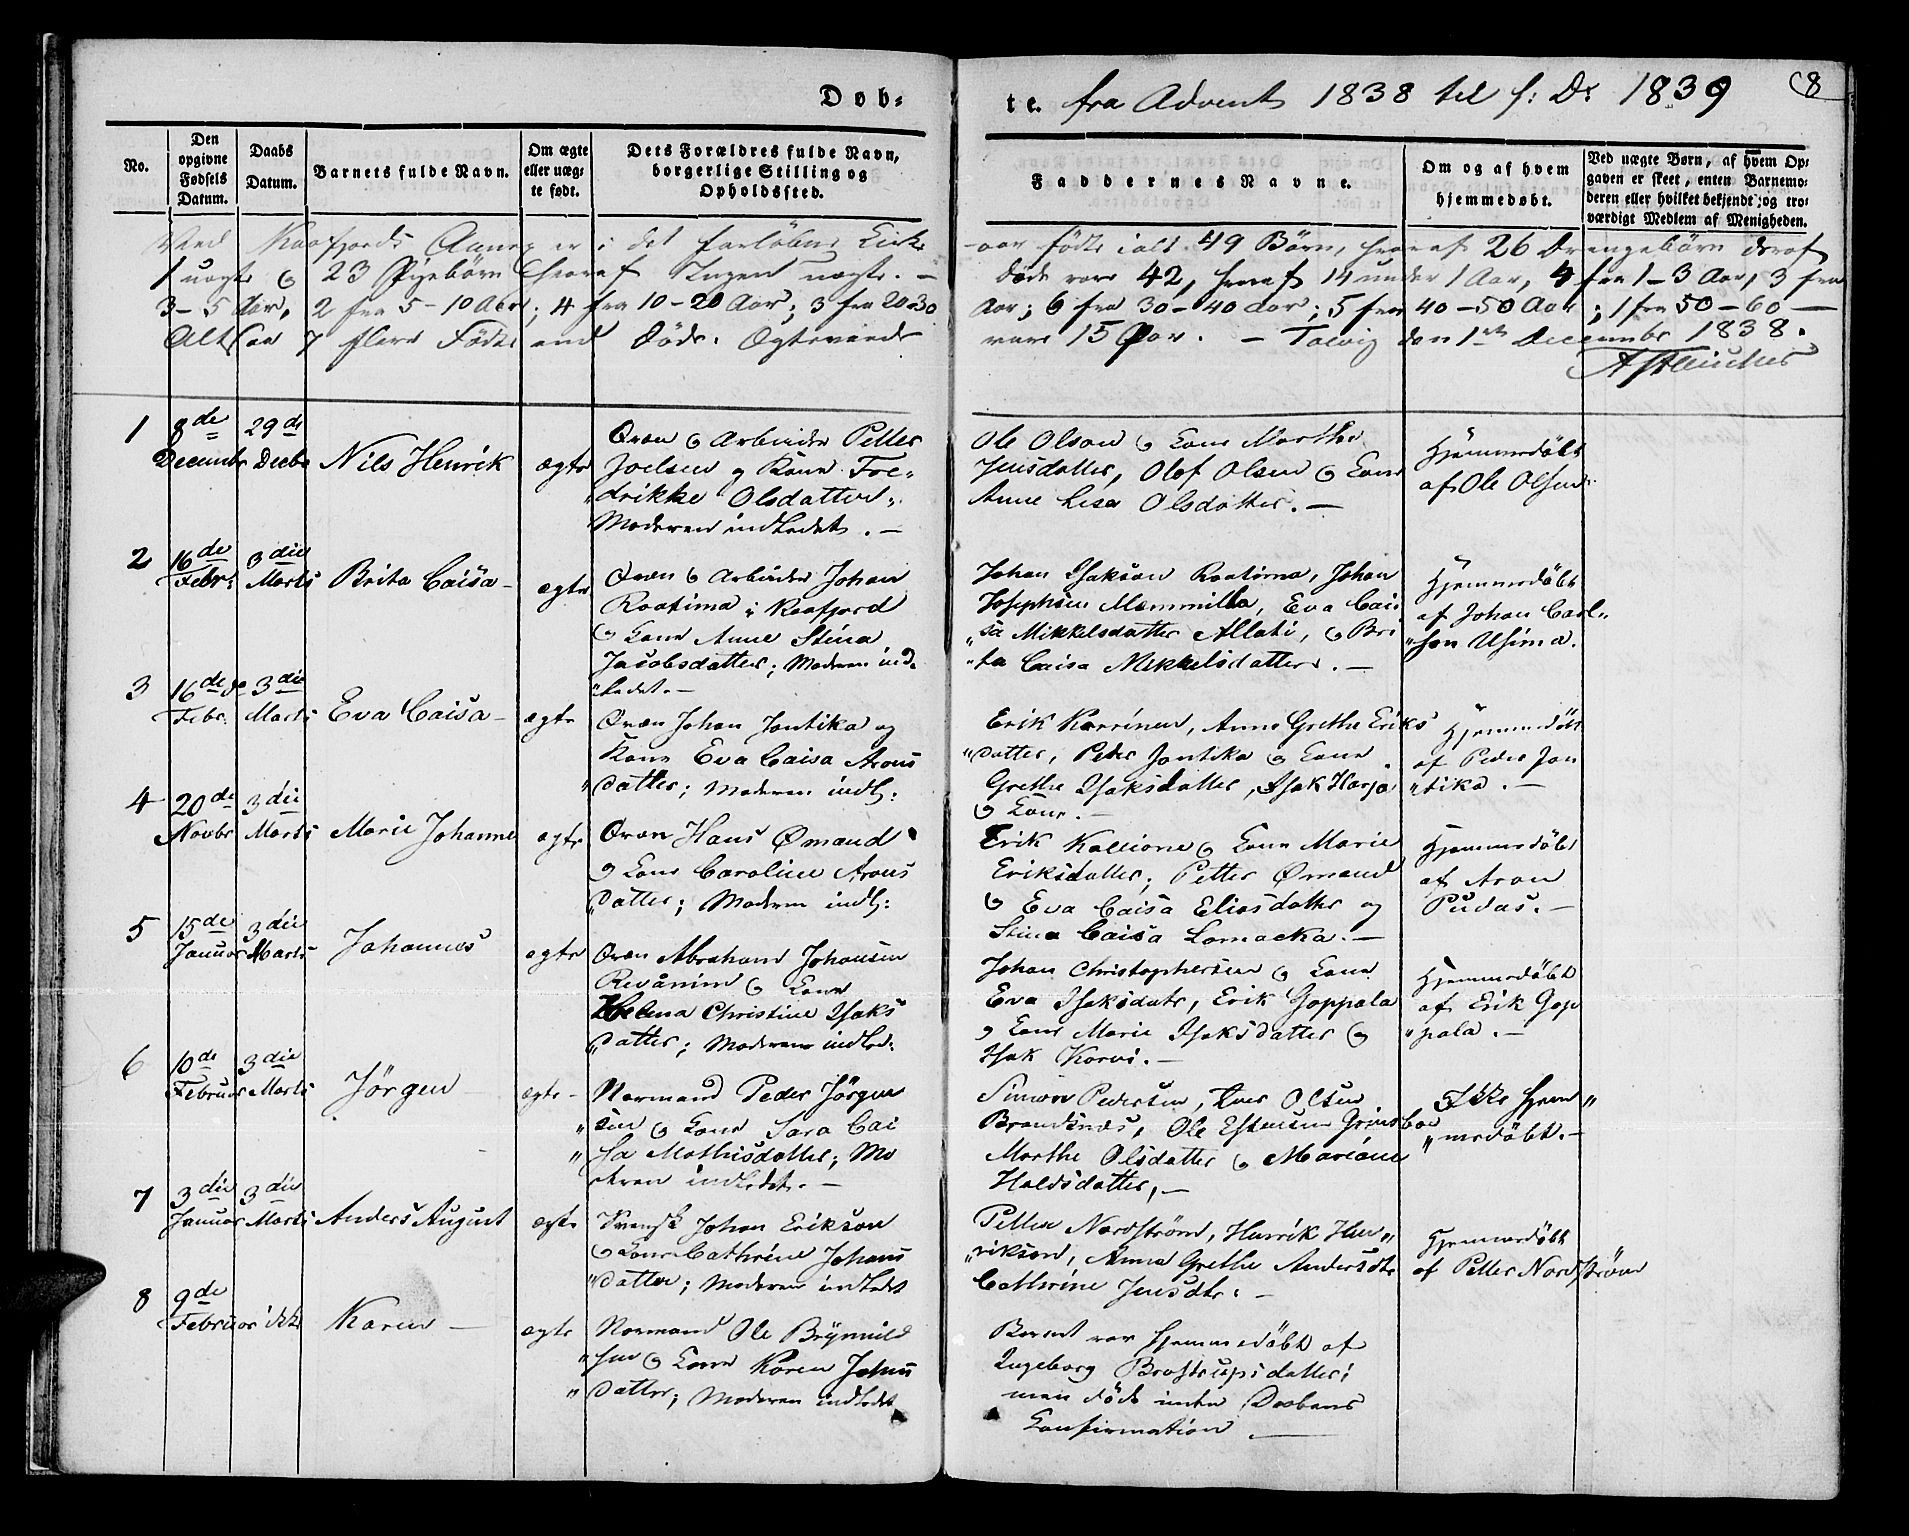 Døb=
te. fra Advent 1838 til f: D: 1839
8
No.
Den opgivne Fødsels Datum.
Daabs Datum.
Barnets fulde Navn.
Om ægte eller uæg-te født.
Dets Forældres fulde Navn, borgerlige Stilling og Opholdssted.
Faddernes Navne.
Om og af hvem hjemmedøbt.
Ved uægte Børn, af hvem Op-gaven er skeet, enten Barnemo-deren eller hvilket bekjendt og tro-værdigt Medlem af Menigheden.
Ved Kaafjords Annex er i det forløbne Kirke
-aar fødte ialt 49 Børn, hvoraf 26 Drengebørn deraf
1 uægte og 23 Pigebørn hvoraf Ingen uægte. —
Døde vare 42, hvoraf 14 under 1 Aar, 4 fra 1-3 Aar, 3 fra
3-5 Aar, 2 fra 5-10 Aar; 4 fra 10-20 Aar; 3 fra 20-30
Aar; 6 fra 30-40 Aar; 5 fra 40-50 Aar; 1 fra 50-60 —
Altsaa 7 flere Fødte end Døde. Ægteviede
vare 15 Par. — Talvig den 1ste Decembr 1838.
1
8de Decembr
29de Decbr
Nils Henrik
ægte
Qvæn og Arbeider Petter
Joelsen og Kone Fre-
„drikke Olsdatter.
Moderen indledet. —
Ole Olson og Kone Marthe
Jensdatter, Olof Olsen og Kone
Anne Lisa Olsdatter. —
Hjemmedøbt
af Ole Olsen
2
16de Febr:
3die Marts
Brita Caisa —
ægte
Qvæn og Arbeider Johan
Raatima i Kaafjord
og Kone Anne Stina
Jacobsdatter; Moderen ind-
„ledet. —
Johan Isakson Raatima, Johan
Josephsen Mammilla, Eva Cai
„sa Mikkelsdatter Allati, og Bri
„ta Caisa Mikkelsdatter. —
Hjemmedøbt
af Johan Carl„
„son Usima.
3
16de Febr:
3die Marts
Eva Caisa —
ægte
Qvæn Johan Jontika og
Kone Eva Caisa Arons
„datter; Moderen indl:
Erik Karrinen, Anne Grethe Eriks
„datter, Peder Jontika og Kone
Grethe Isaksdatter, Isak Harja
og Kone. —
Hjemmedøbt
af Peder Jon
„tika. —
4
20de Novbr
3die Marts
Marie Johanne
ægte
Qvæn Hans Ømand
og Kone Caroline Arons
„datter; Moderen indl:
Erik Kallione og Kone Marie
Eriksdatter; Petter Ømand
og Eva Caisa Eliasdatter og
Stina Caisa Lamacka. —
Hjemmedøbt
af Aron
Pudas. —
5
15de Januar
3die Marts
Johannes
ægte
Qvæn Abraham Johansen
Revänim og Kone
Helena Christine Isaks
„datter; Moderen indled:
Johan Christophersen og Kone
Eva Isaksdatr, Erik Goppala
og Kone Marie Isaksdatter og
Isak Korvi. —
Hjemmedøbt
af Erik Gop
„pala. —
6
10de Februar
3die Marts
Jørgen —
ægte —
Normand Peder Jørgen
„sen og Kone Sara Cai
„sa Mathisdatter; Mo
deren indledet. —
Simon Pedersen, Iver Olsen
Brandsnes, Ole Estensen Grinsboe
Marthe Olsdatter og Mariane
Haldsdatter, —
Ikke hjem„
„medøbt. —
7
3die Januar
3die Marts
Anders August
ægte
Svensk Johan Erikson
og Kone Cathrine Johans
„datter; Moderen indledet
Petter Nordström, Henrik Hen„
„rikson, Anna Grethe Andersdtr
Cathrine Jensdtr. —
Hjemmedøbt
af Petter Nordström
8
9de Februar
ikke
Karen —
ægte
Normand Ole Brynnild
„sen og Kone Karen Johns
„datter; Moderen indledet
Barnet var hjemmedøbt af
Ingeborg Brostrupsdatter;
men døde inden Daabens
Confirmation —